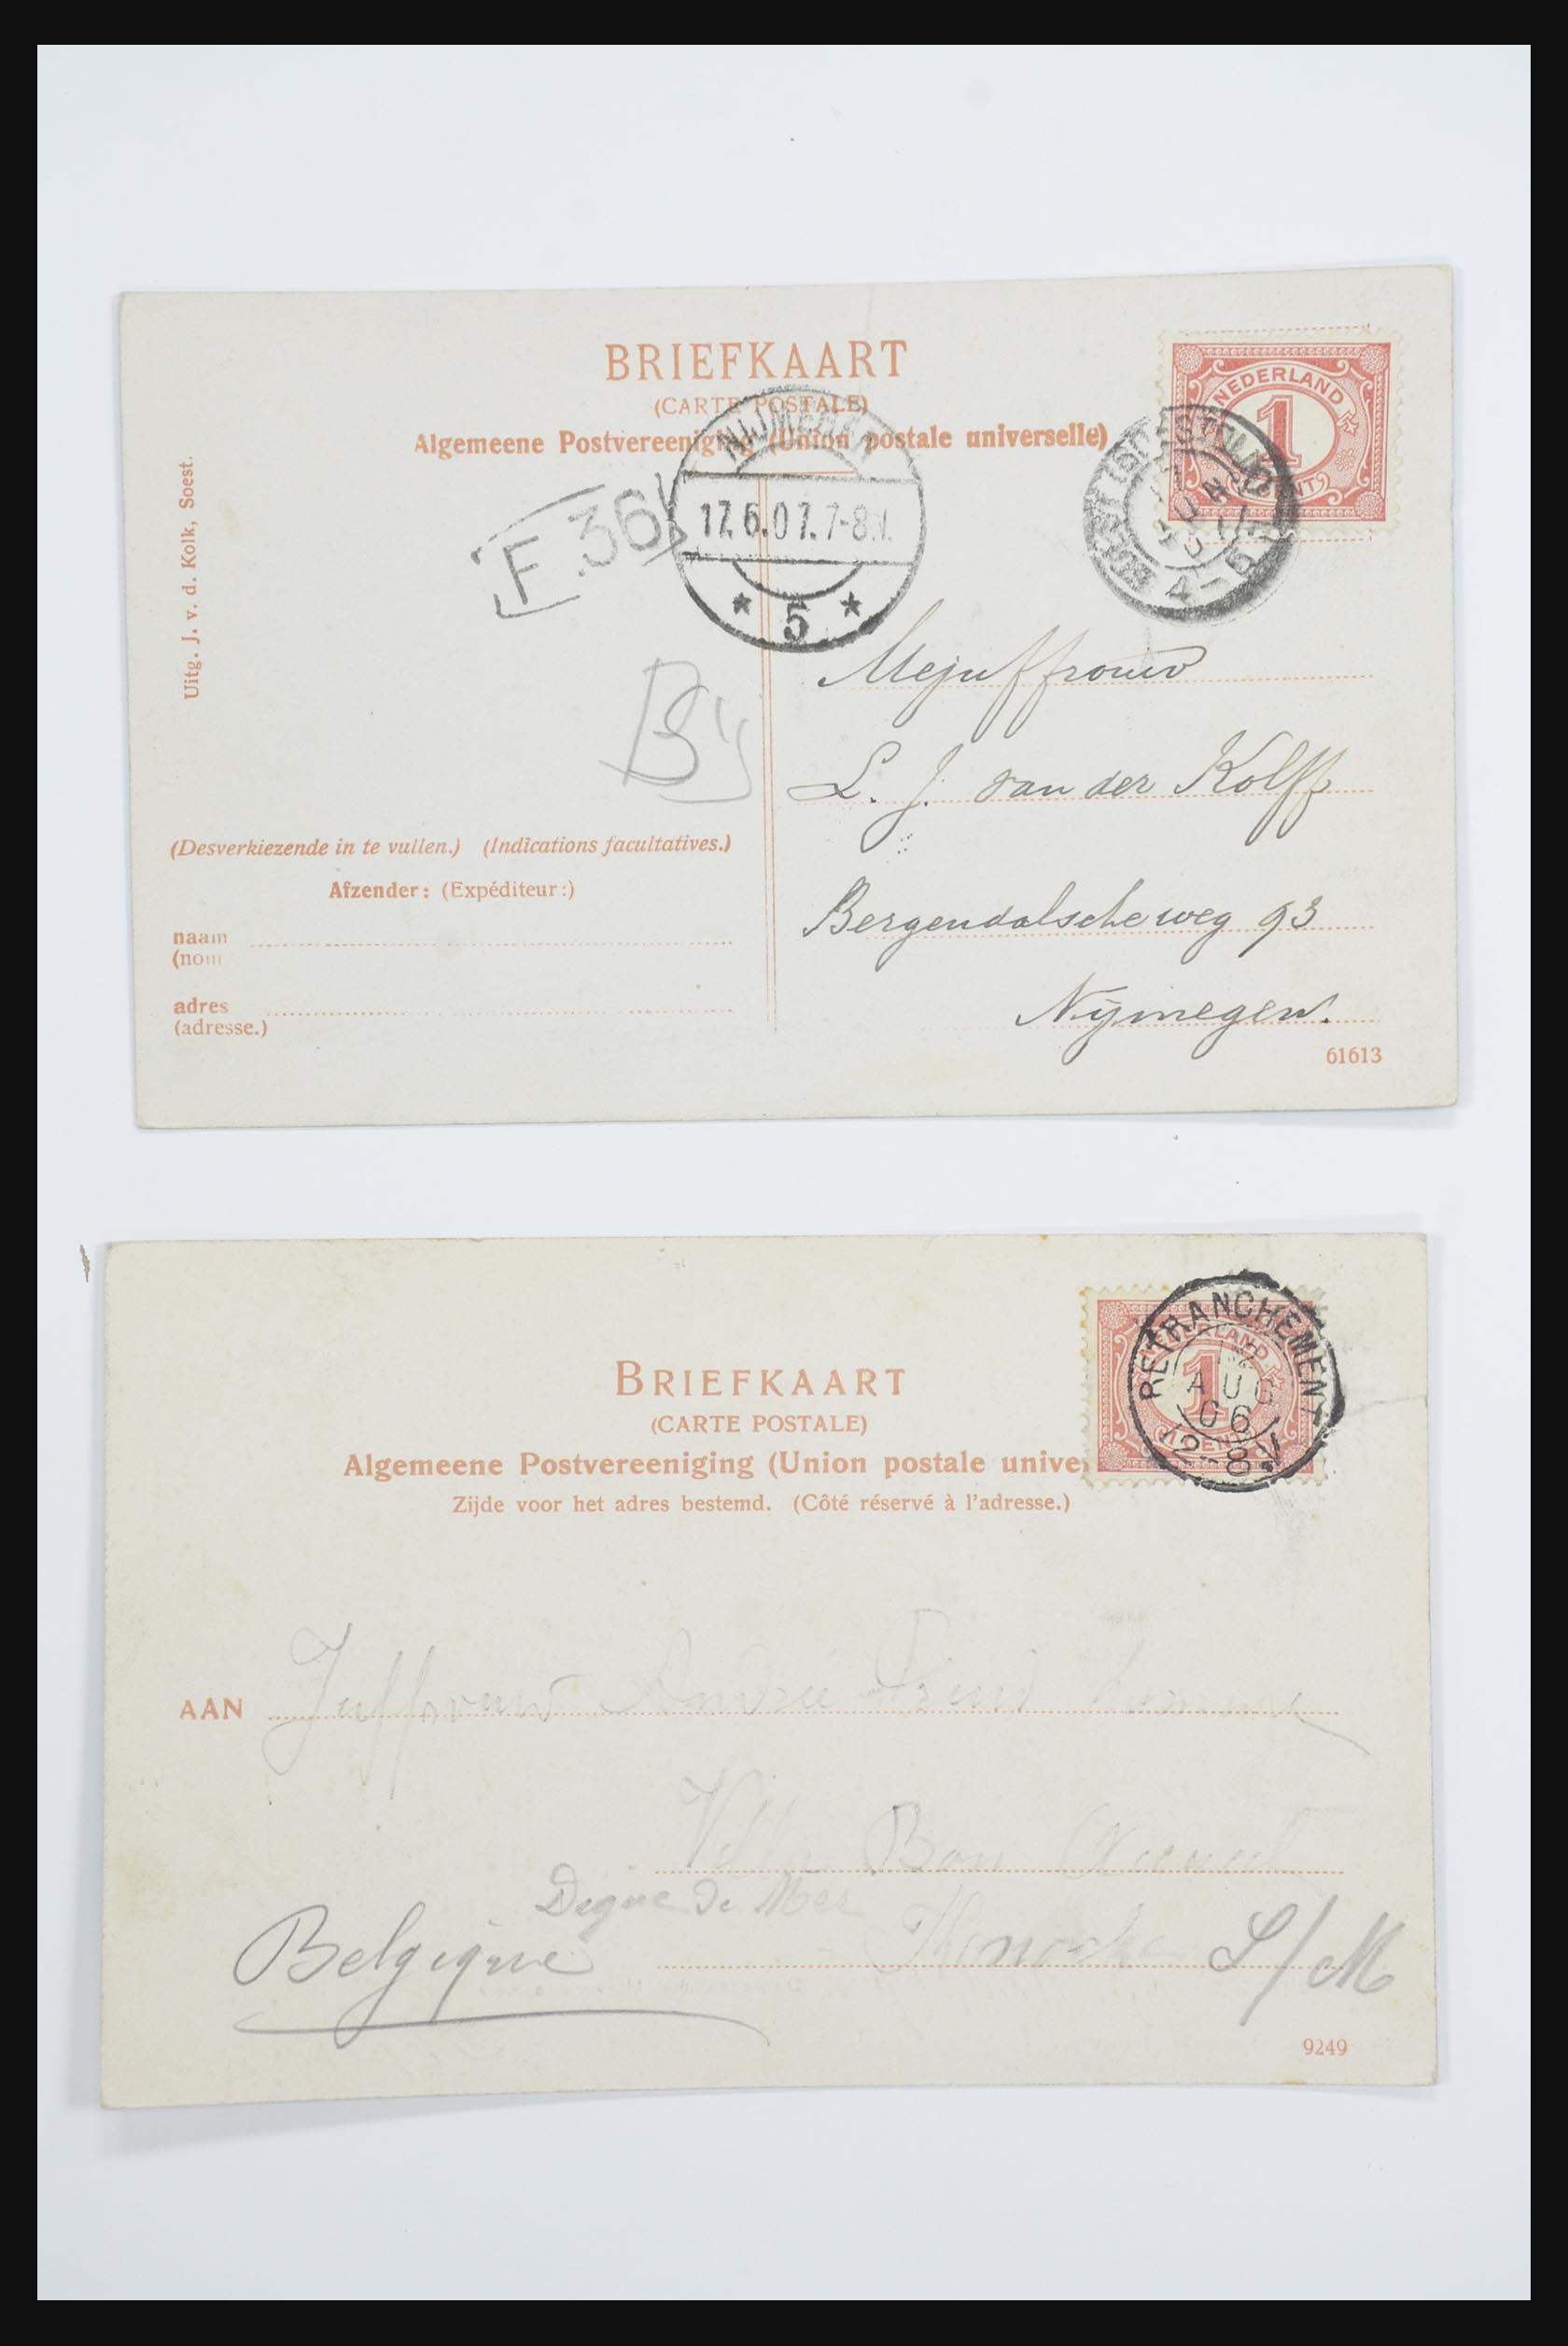 BRIEFKAART
(CARTE POSTALE)
Algemeene Postvereeniging (Union postale universelle)
NEDERLAND
1
CENT
NIJMEGEN
17.6.07.7-8V.
* 5 *
JUN
4-5
F.36
Uitg. J. v. d. Kolk, Soest.
Mejuffrouw
L. J. van der Kolff
(Desverkiezende in te vullen.) (Indications facultatives.)
Afzender: (Expéditeur:)
Bergendalscheweg 93
naam
(nom
Nijmegen.
adres
(adresse.)
61613
RETRANCHEMENT
NEDERLAND
1
CENT
12
AUG
06
12-8V
BRIEFKAART
(CARTE POSTALE)
Algemeene Postvereeniging (Union postale unive
Zijde voor het adres bestemd. (Côté réservé à l'adresse.)
AAN Juffrouw André
Villa Bon Accueil
Digue de Mer
Belgique S/M
9249